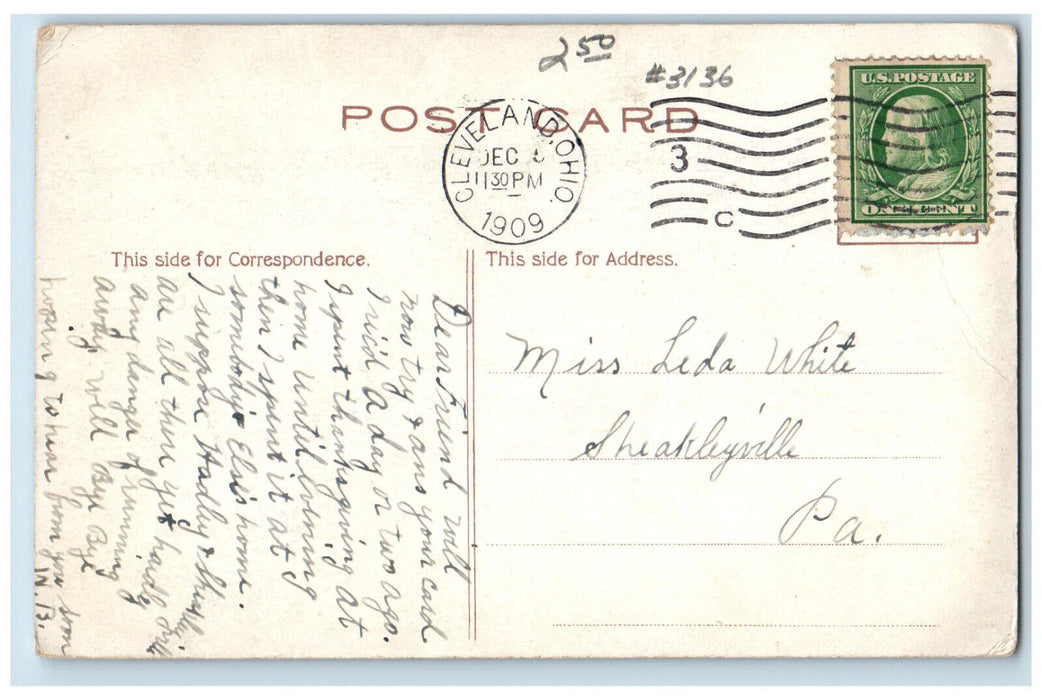 2 50
#3136
U.S. POSTAGE
POST CARD
CLEVELAND, OHIO.
DEC 5
11 30 PM
1909
3
C
ONE CENT
This side for Correspondence.
This side for Address.
Dear Friend will
now try & ans your card
I ric'd a day or two ago.
I spent thanksgiving at
home until evening
then I spent it at
sombodys Else's home.
I suppose Hadley &
are all there yet hardly
any danger of running
away. Well Bye Bye
to hear from you soon
W.B.
Miss Leda White
Sheakleyville
Pa.